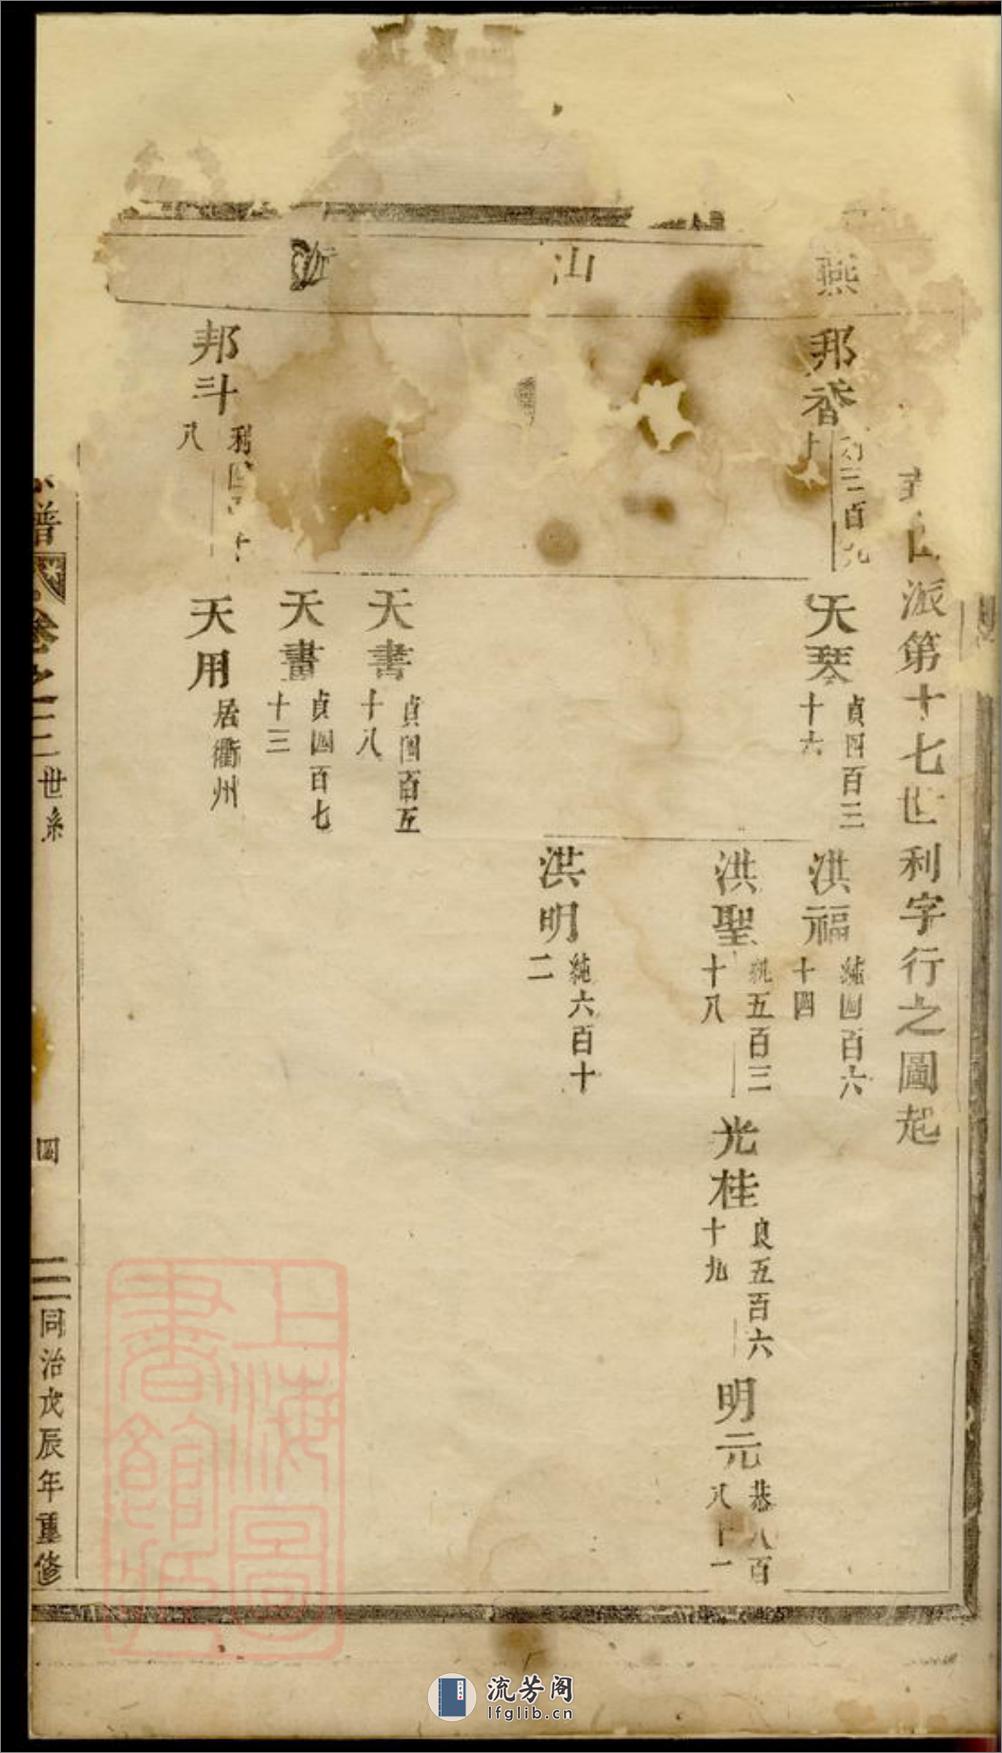 派第十七世利字行之圖起
燕山
邦香
三百九十
天琴
貞四百三十六
洪福
純四百六十四
洪聖
純五百三十八
光桂
良五百六十九
明元
恭八百八十一
洪明
純六百十二
天書
貞四百五十八
天畫
貞四百七十三
邦斗
利四十八
天用
居衢州
譜
卷之二
世系
四
同治戊辰年重修
上海圖書館藏
流芳阁
lfglib.cn